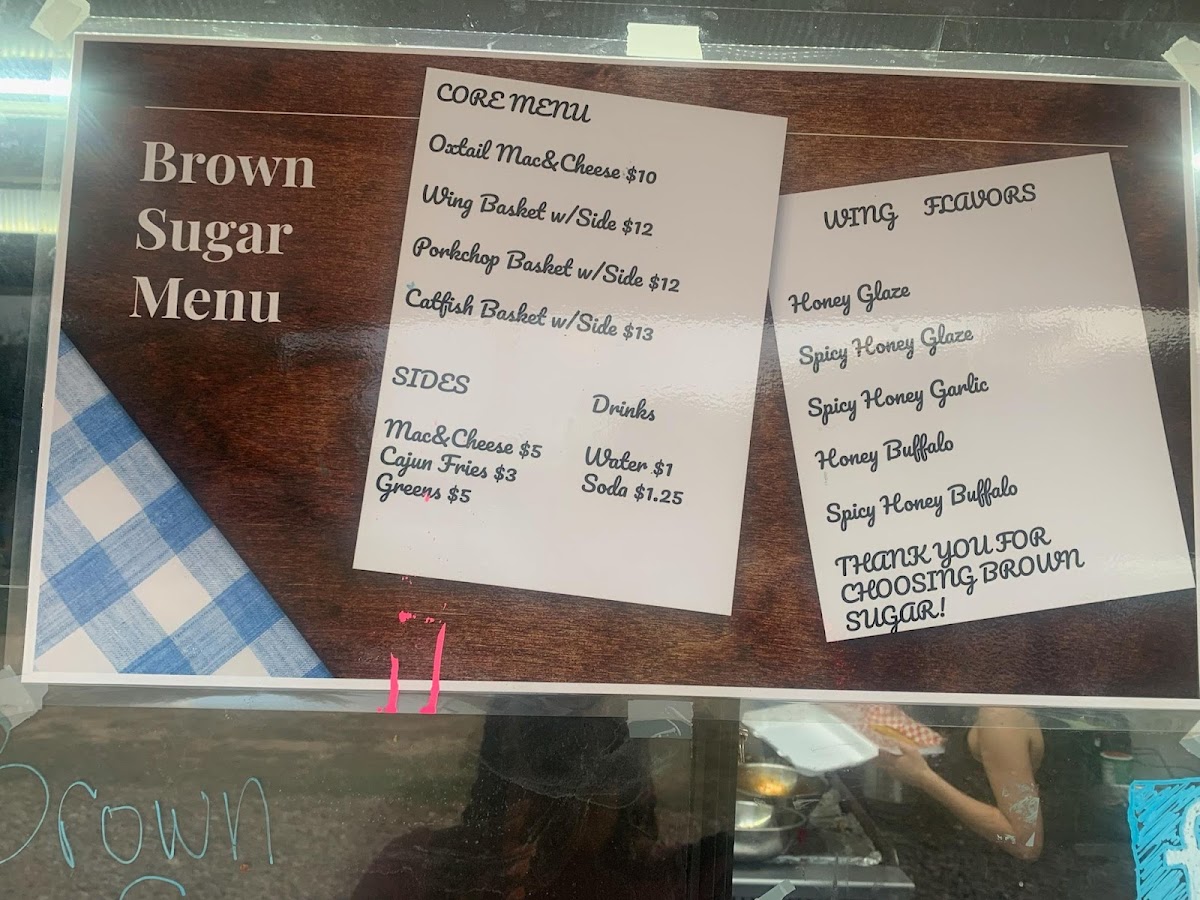 Brown
Sugar
Menu
CORE MENU
Oxtail Mac&Cheese $10
Wing Basket w/Side $12
Porkchop Basket w/Side $12
Catfish Basket w/Side $13
SIDES
Mac&Cheese $5
Cajun Fries $3
Greens $5
Drinks
Water $1
Soda $1.25
WING FLAVORS
Honey Glaze
Spicy Honey Glaze
Spicy Honey Garlic
Honey Buffalo
Spicy Honey Buffalo
THANK YOU FOR
CHOOSING BROWN
SUGAR!
Brown